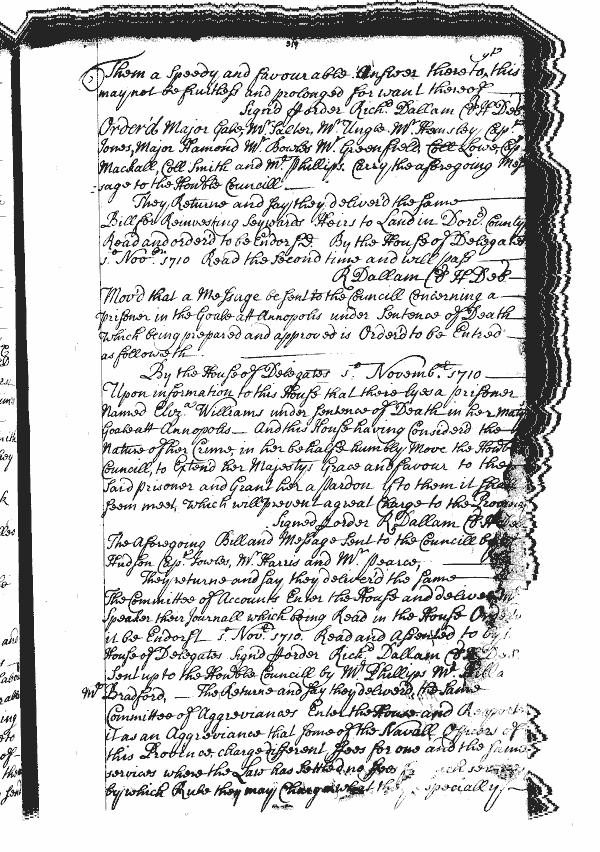 319
Them a Speedy and favourable Answer thereto, that this
may not be fruitless and prolonged for want thereof
Signd p order Richd. Dallam Cl H Del
Order'd Major Gale, Mr. Salter, Mr. Ungle, Mr. Hemsley, Capt.
Jones, Major Hamond Mr. Bowles Mr. Greenfield, Coll Lowe, Capt
Mackall, Coll Smith and Mr. Phillips. Carry the aforegoing Mes
sage to the Honble Councill
They Returne and say they deliverd the same
Bill for Reinvesting Seywards Heirs to Land in Dorc. County
Read and orderd to be Endorsed By the House of Delegates
1st. Nov. 1710 Read the Second time and will pass
R Dallam Cl H Del
Mov'd that a Message be sent to the Councill Concerning a
prisoner in the Goale att Annopolis under Sentence of Death
which being prepared and approved is Orderd to be Entred
as followeth
By the House of Delegates 1st. Novembr. 1710
Upon information to this House that there lyes a prisoner
Named Eliza. Williams under Sentence of Death in her majtys
Goale att Annopolis And this House having Considerd the
Nature of her Crime, in her behalfe humbly Move the Honble
Councill, to Extend her Majestys Grace and favour to the
said prisoner and Grant her a pardon if to them it shall
seem meet, which will prevent a great Charge to the Province
Signed p order R Dallam Cl H Del
The Aforegoing Bill and Message Sent to the Councill by
Hudson Capt. Towles, Mr. Harris and Mr. Pearce,
They returne and say they deliverd the same
The Committee of Accounts Enter the House and deliver
Speaker their Journall which being Read in the House Ord
it be Endorst 1st. Nov. 1710. Read and Assented to by
House of Delegates Signd p order Richd. Dallam Cl H Del
Sent up to the Honble Councill by Mr. Phillips Mr.
Mr. Bradford, The Returne and say they deliverd, the same
Committee of Aggreviances Enter the House and Report
it as an Aggreviance that some of the Navall Officers of
this Province, charge different ffees for one and the same
services where the Law has settled no ffees
by which Rule they may Charge what they especially